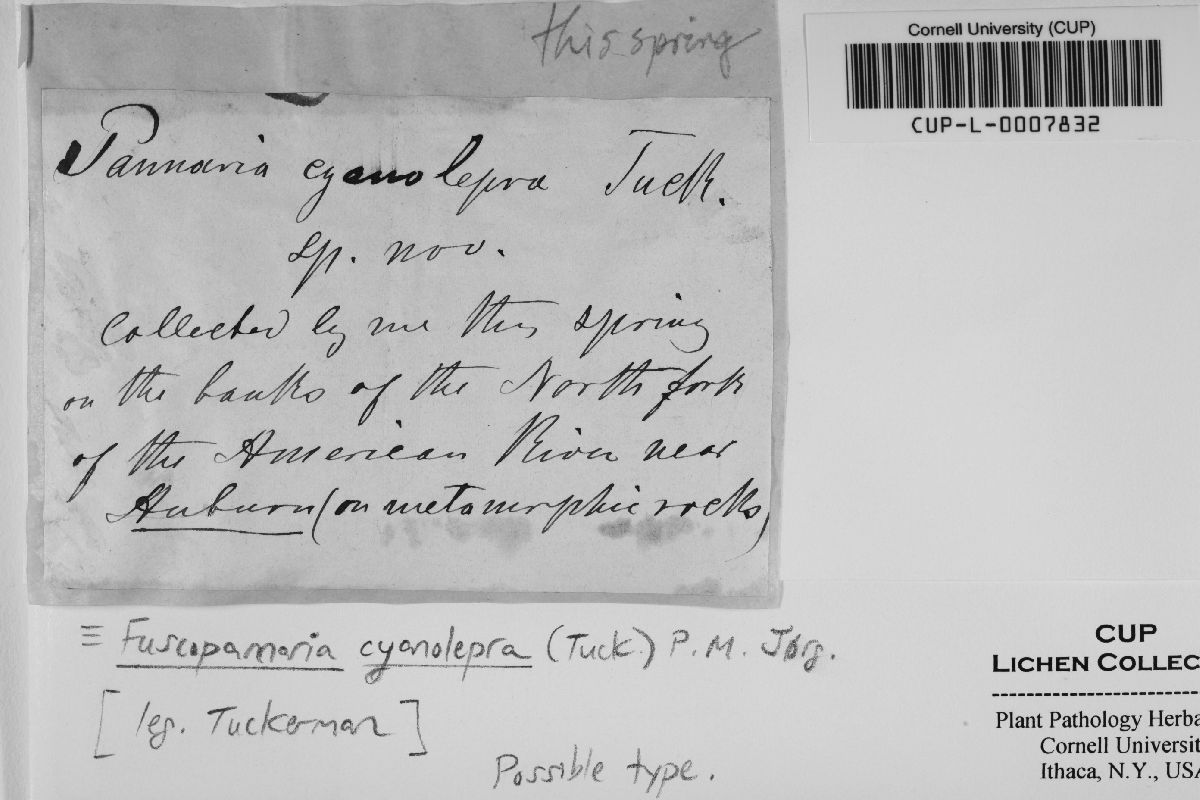 this spring
Cornell University (CUP)
CUP-L-0007832
Pannaria cyanolepra Tuck.
sp. nov.
Collected by me this spring
on the banks of the North fork
of the American River near
Auburn (on metamorphic rocks)
≡ Fuscopannaria cyanolepra (Tuck.) P. M. Jørg.
[leg. Tuckerman]
Possible type.
CUP
LICHEN COLLEC
Plant Pathology Herba
Cornell Universit
Ithaca, N.Y., USA